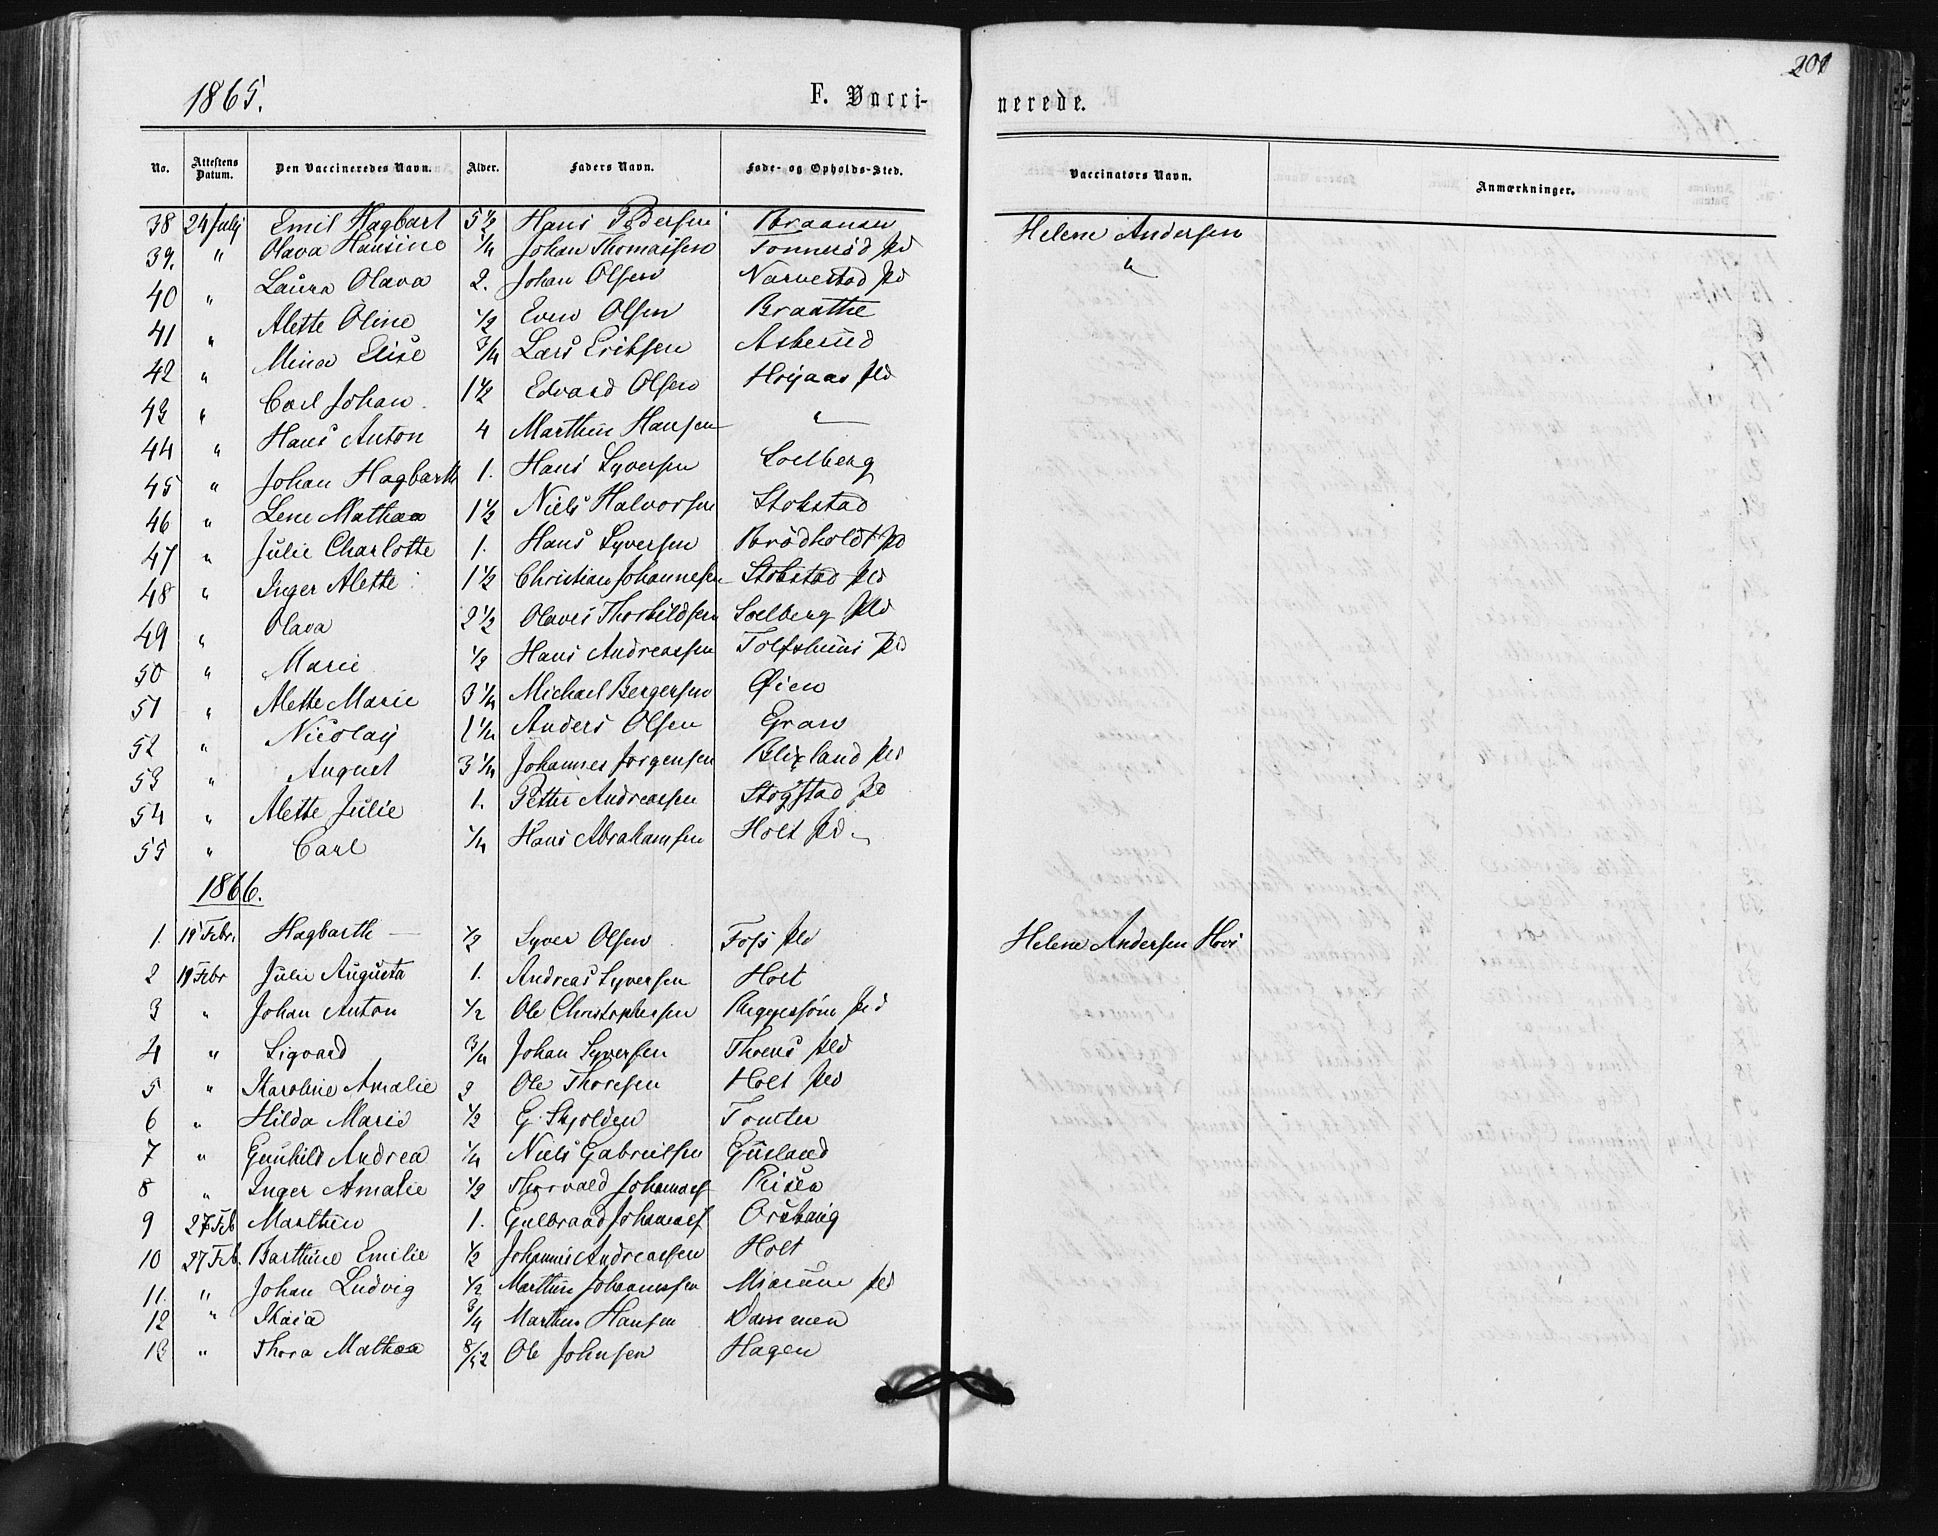 201
1865. F. Vacci- nerede.
No. Attestens Datum. Den Vaccineredes Navn. Alder. Faders Navn. Føde- og Opholds-Sted. Vaccinators Navn. Anmærkninger.
38 24 July Emil Hagbart 5 1/2 Hans Pedersen Braanen Helene Andersen
39. " Olava Hansine 1/4 Johan Thomassen Tonnerød pld "
40 " Laura Olava 2. Johan Olsen Narvestad pld
41 " Alette Oline 1/2 Even Olsen Braathe
42 " Mina Elise 3/4 Lars Eriksen Askerud
43 " Carl Johan 1 1/2 Edvard Olsen Højaas pld
44 " Hans Anton 4 Marthin Hansen "
45 " Johan Hagbarth 1. Hans Syversen Solberg
46 " Lene Mathea 1 1/2 Niels Halvorsen Stokstad
47 " Julie Charlotte 1. Hans Syversen Brødholdt pld
48 " Inger Alette 1 1/2 Christian Johannesen Stokstad pld
49 " Olava 2 1/2 Olaves Thorkildsen Solberg pld
50 " Marie 1/2 Hans Andreassen Tolfshuus pld
51 " Alette Marie 3 1/4 Michael Bergersen Øien
52 " Nicolay 1 1/4 Anders Olsen Gran
53 " August 3 1/4 Johannes Jørgensen Blixland pld
54 " Alette Julie 1. Petter Andreassen Stogstad pld
55 " Carl 1/4 Hans Abrahamsen Holt pld
1866.
1. 19 Febr. Hagbarth 1/2 Syver Olsen Foss pld Helene Andersen Hovi
2 19 Febr Julie Augusta 1. Andreas Syversen Holt
3 " Johan Anton 1/2 Ole Christophersen pld
4 " Sigvard 3/4 Johan Syversen Thoens pld
5 " Karoline Amalie 2 Ole Thoresen Holt pld
6 " Hilda Marie 1/2 G. Skjolden Tomter
7 " Gunhild Andrea 1/4 Niels Gabrielsen Gusland
8 " Inger Amalie 1/2 Thorvald Johannesf Risen
9 27 Feb Marthin 1. Gulbrand Johannesf
10 27 Feb. Barthine Emilie 1/2 Johannes Andreassen Holt
11. " Johan Ludvig 1/2 Marthin Johannessen pld
12 " Maia 3/4 Marthin Hansen Dammen
13 " Thora Mathea 8/12 Ole Johnsen Hagen